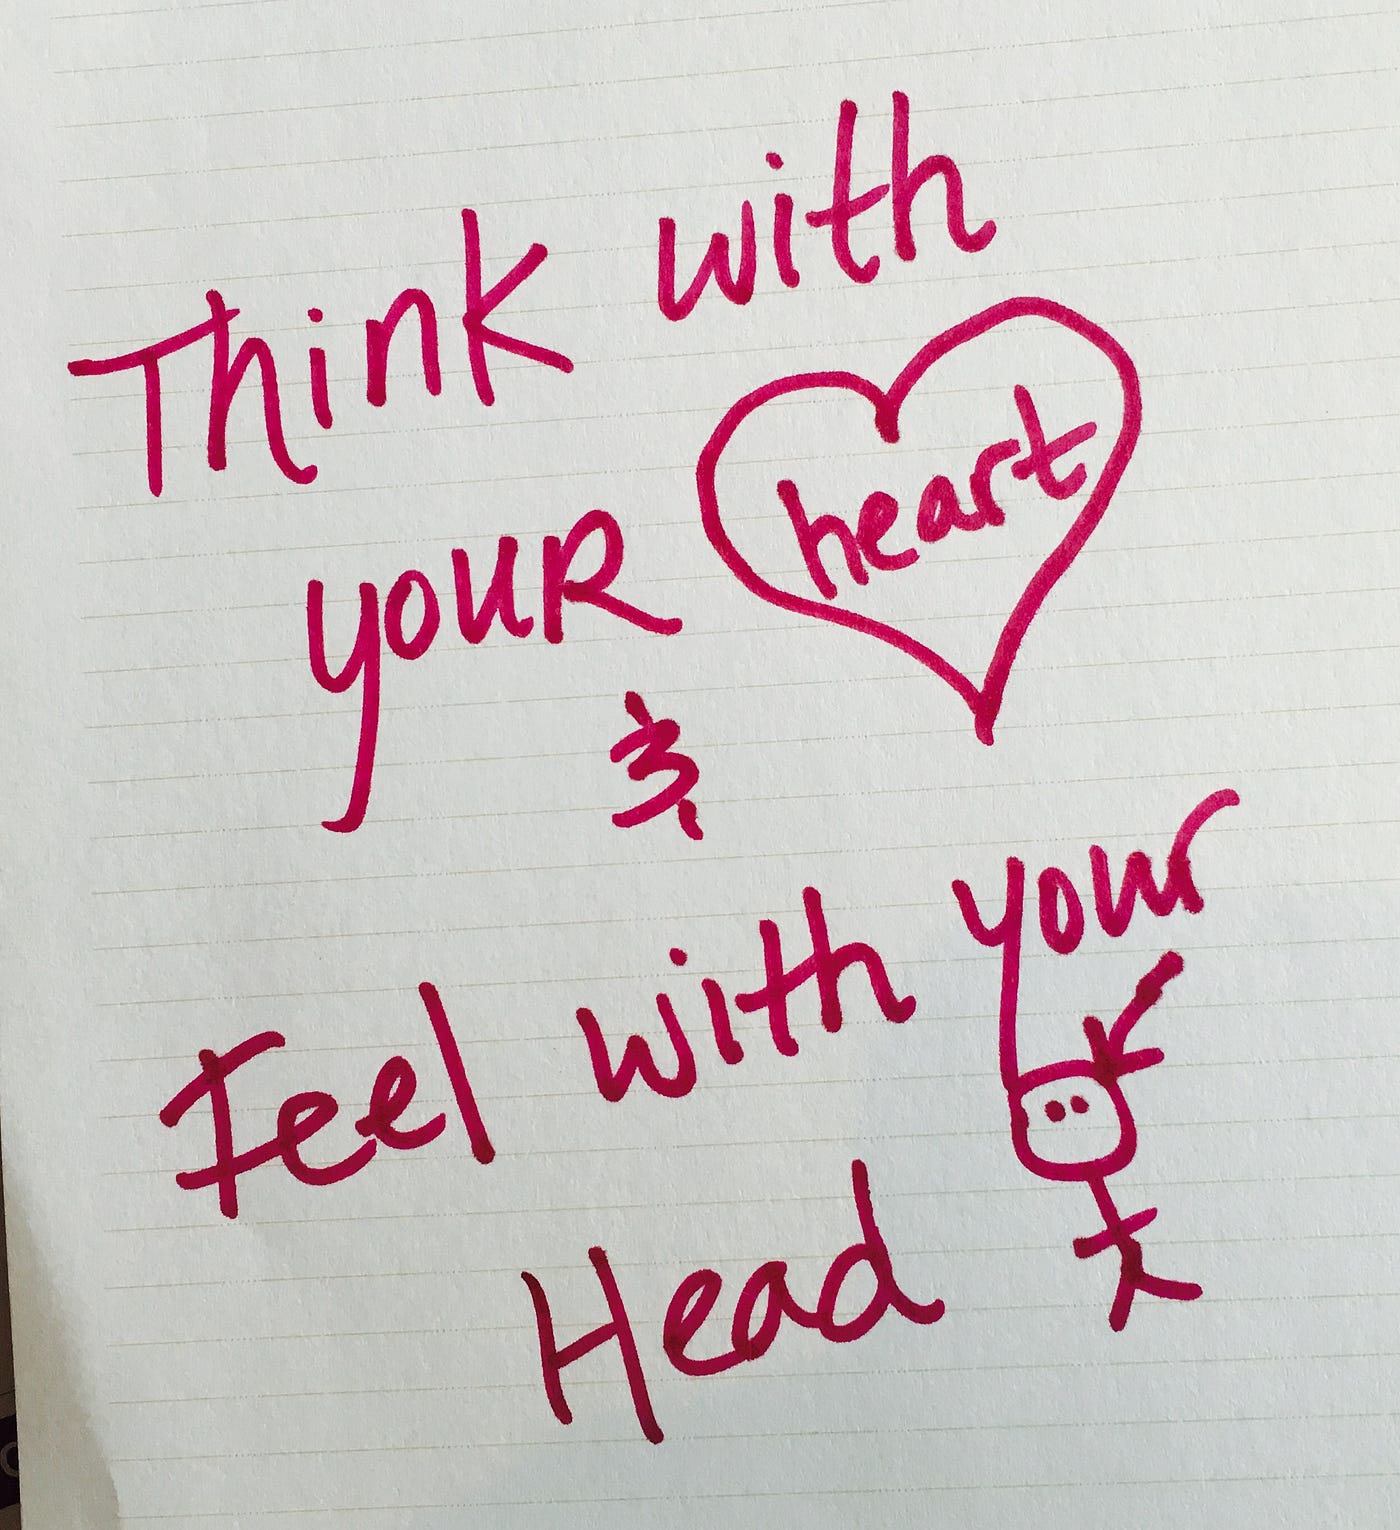 Think with
your heart
&
Feel with your
Head